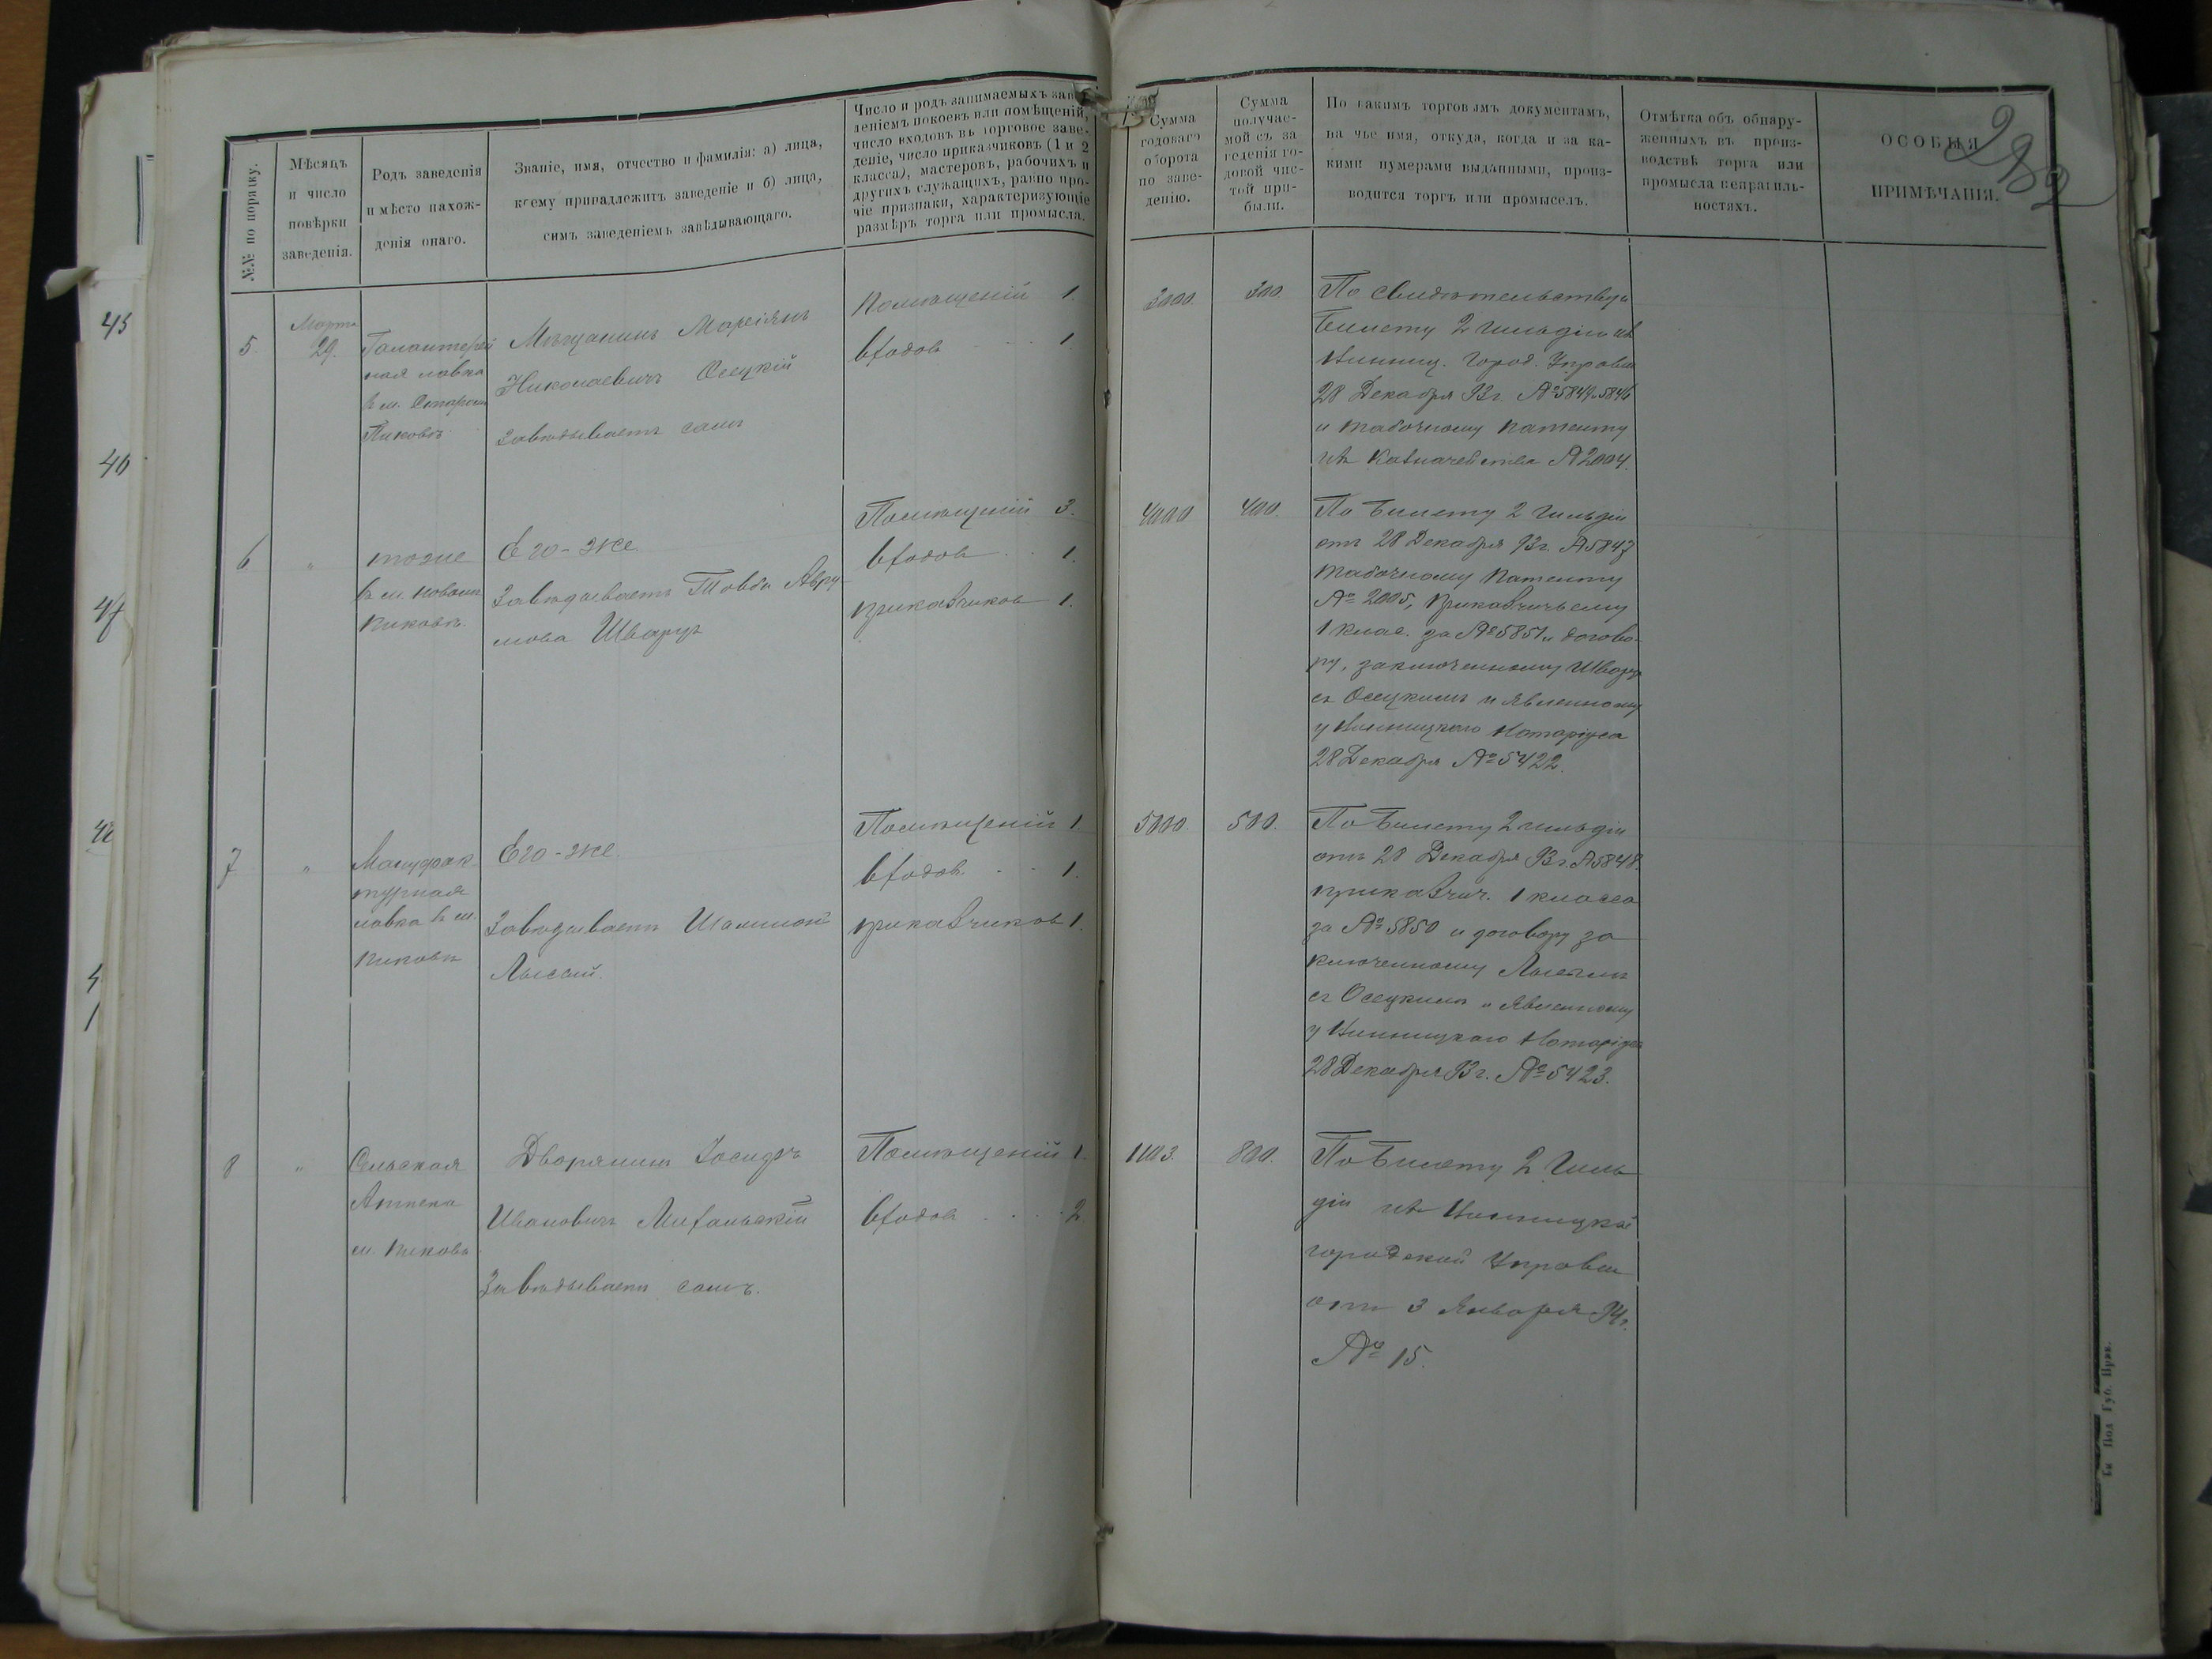 №№ по порядку.
Мѣсяцъ
и число
повѣрки
заведенія.
Родъ заведенія
и мѣсто нахож-
денія онаго.
Званіе, имя, отчество и фамилія: а) лица,
коему принадлежитъ заведеніе и б) лица,
симъ заведеніемъ завѣдывающаго.
Число и родъ занимаемыхъ заве-
деніемъ покоевъ или помѣщеній,
число входовъ въ торговое заве-
деніе, число приказчиковъ (1 и 2
класса), мастеровъ, рабочихъ и
другихъ служащихъ, равно про-
чіе признаки, характеризующіе
размѣръ торга или промысла.
Сумма
годоваго
оборота
по заве-
денію.
Сумма
получае-
мой съ за
веденія го-
довой чис-
той при-
были.
По какимъ торговымъ документамъ,
на чье имя, откуда, когда и за ка-
кими нумерами выданными, произ-
водится торгъ или промыселъ.
Отмѣтка объ обнару-
женныхъ въ произ-
водствѣ торга или
промысла неправиль-
ностяхъ.
ОСОБЫЯ
ПРИМѢЧАНІЯ.
5.
Марта
29.
Галантерей
ная лавка
въ м. Старомъ
Пиковѣ.
Мѣщанинъ Марсіянъ
Николаевичъ Осецкій
Завѣдываетъ самъ
Помѣщеній 1.
Входовъ 1
3000.
300.
По свидѣтельству и
билету 2 гильдіи изъ
Винниц. Город. Управы
28 Декабря 93 г. № 5849-5846
и табочному патенту
изъ Казначейства № 2004.
6
"
тоже
въ м. новомъ
Пиковѣ.
Его-же.
Завѣдываетъ Товба Авру-
мова Шварцъ
Помѣщеній 3.
Входовъ 1.
приказчиковъ 1.
4000
400.
По билету 2 гильдіи
отъ 28 Декабря 93 г. № 5847
табочному патенту
№ 2005, приказчичьему
1 клас. за № 5851 и догово-
ру, заключенному Шварцъ
съ Осецкимъ и явленному
у Винницкаго Нотаріуса
28 Декабря № 5422.
7
"
Мануфак-
турная
лавка въ м.
Пиковѣ
Его-же.
Завѣдываетъ
Лысый.
Помѣщеній 1.
Входовъ 1.
приказчиковъ 1.
5000.
500.
По билету 2 гильдіи
отъ 28 Декабря 93 г. № 5848.
приказчич. 1 класса
за № 5850 и договору за
ключенному Лысымъ
съ Осецкимъ и явленному
у Винницкаго Нотаріуса
28 Декабря 93 г. № 5423.
8
"
Сельская
Аптека
м. Пиковъ
Дворянинъ Іосифъ
Ивановичъ Михальскій
Завѣдываетъ самъ.
Помѣщеній 1.
Входовъ 2
1103.
800.
По билету 2 Гиль
діи изъ Винницкой
городской Управы
отъ 3 Января 94 г.
№ 15.